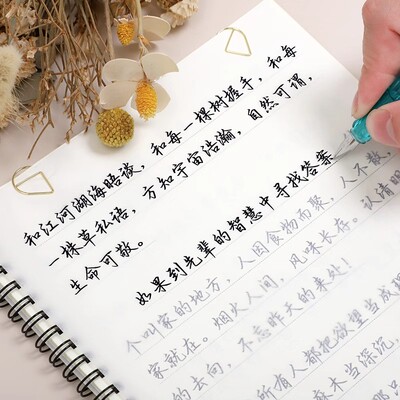 和江河湖海晤谈，和每一棵树握手，和每
一株草私语，方知宇宙浩瀚，自然可谓，
生命可敬。
如果到先辈的智慧中寻找答案
个叫家的地方，人因食物而聚，人不散，
家就在。烟火人间，风味长存。认清明
的去向，不忘昨天的来处！
所有人都把欲望当成
麻木当深沉，